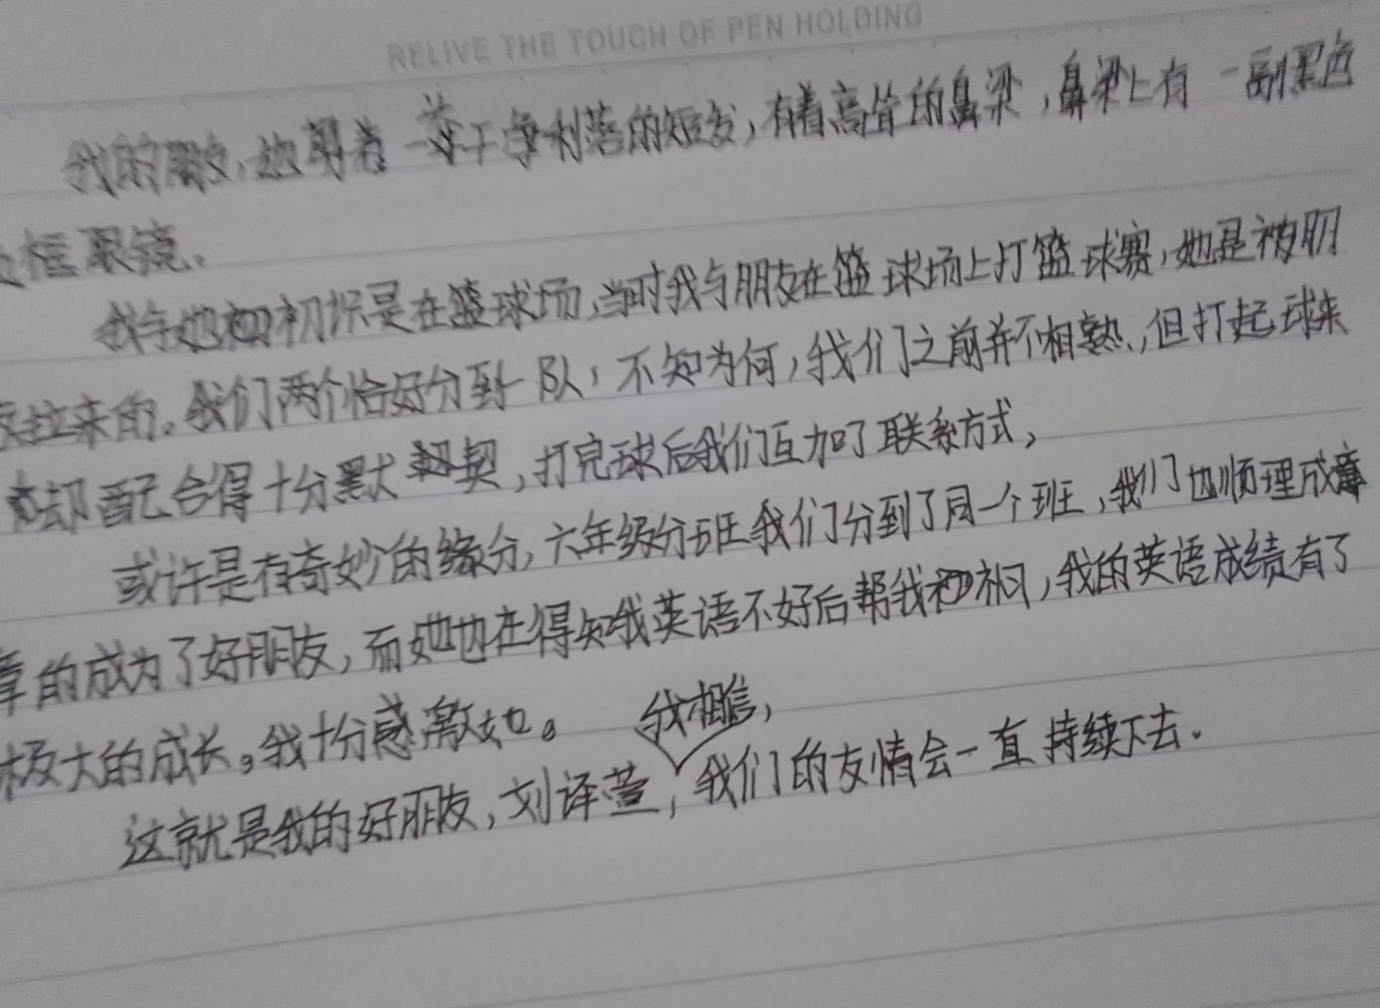 RELIVE THE TOUCH OF PEN HOLDING
我的朋友,她留着一头干净利落的短发,有着高耸的鼻梁,鼻梁上有一副黑色
边框眼镜。
我与她初识是在篮球场,当时我与朋友在篮球场上打篮球赛,她是被朋
友拉来的。我们两个恰好分到一队,不知为何,我们之前并不相熟,但打起球来
却配合得十分默契,打完球后我们互加了联系方式,
或许是有奇妙的缘分,六年级分班我们分到了同一个班,我们也顺理成章
章的成为了好朋友,而她也在得知我英语不好后帮我补习,我的英语成绩有了
极大的成长。我十分感激她。 我相信,
这就是我的好朋友,刘译萱,我们的友情会一直持续下去.